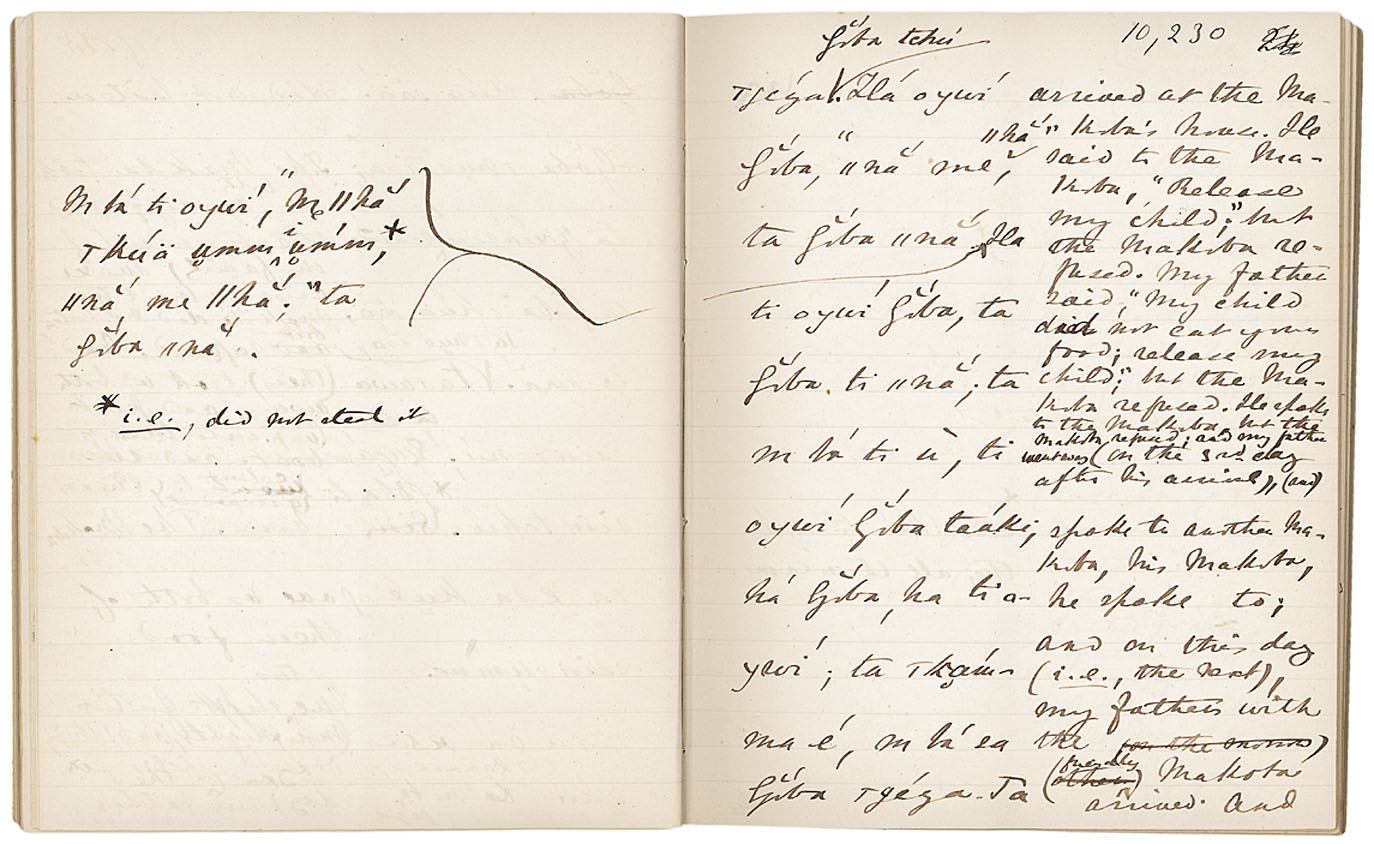 M bá ti oywí, "M ǁhă
tkúä umm i umm,*
ǁnă, me ǁhă." ta
Ǧŏba ǁnă.
* i.e., did not steal it
Ǧŏba tchú 10,230
tyéya. Há oywí
Ǧŏba, "ǁnă me, ǁhă"
ta Ǧŏba ǁnă. Ha
ti oywí Ǧŏba, ta
Ǧŏba ti ǁnă; ta
m bá ti ù, ti
oywí Ǧŏba taáki;
há Ǧŏba, ha ti o-
ywí; ta tkám-
ma-é, m bá sa
Ǧŏba tyéya. Ta
arrived at the Ma-
koba's house. He
said to the Ma-
koba, "Release
my child;" but
the Makoba re-
fused. My father
said, "My child
did not eat your
food; release my
child;" but the Ma-
koba refused. He spoke
to the Makoba, but the
Makoba refused; and my father
went away (on the 3rd day
after his arrival), (and)
spoke to another Ma-
koba, his Makoba,
he spoke to;
and on this day
(i.e., the next),
my father with
the (on the morrow)
(friendly other) Makoba
arrived. And